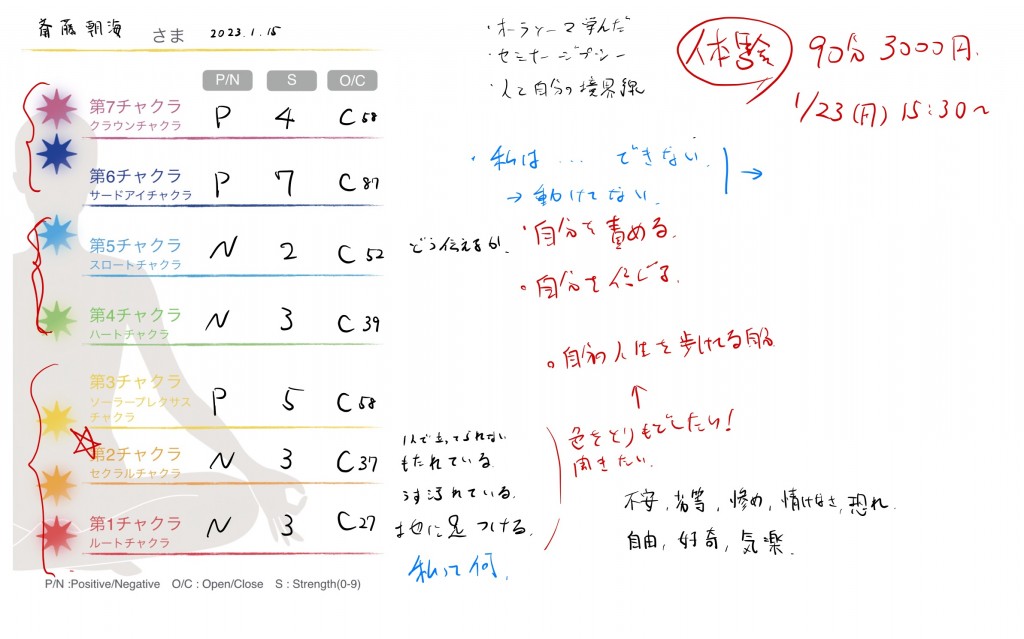 斎藤朝海 さま 2023.1.15
P/N S O/C
第7チャクラ
クラウンチャクラ
P 4 C 58
第6チャクラ
サードアイチャクラ
P 7 C 87
第5チャクラ
スロートチャクラ
N 2 C 52 どう伝えるか.
第4チャクラ
ハートチャクラ
N 3 C 39
第3チャクラ
ソーラープレクサス
チャクラ
P 5 C 58
第2チャクラ
セクラルチャクラ
N 3 C 37
第1チャクラ
ルートチャクラ
N 3 C 27
P/N :Positive/Negative O/C : Open/Close S : Strength(0-9)
1人で立ってられない
もたれている.
うずもれている.
地に足つける.
私って何.
・オーラソーマで学んだ
・セミナージプシー
・人と自分の境界線
体験 90分 3000円.
1/23(月) 15:30~
・私は … できない.
→ 動けてない. →
・自分を責める.
。自分を信じる.
。自分の人生を歩けてる自分
↑
色をとりもどしたい!
聞きたい.
不安, 劣等, 惨め, 情けなさ, 恐れ.
自由, 好奇, 気楽.